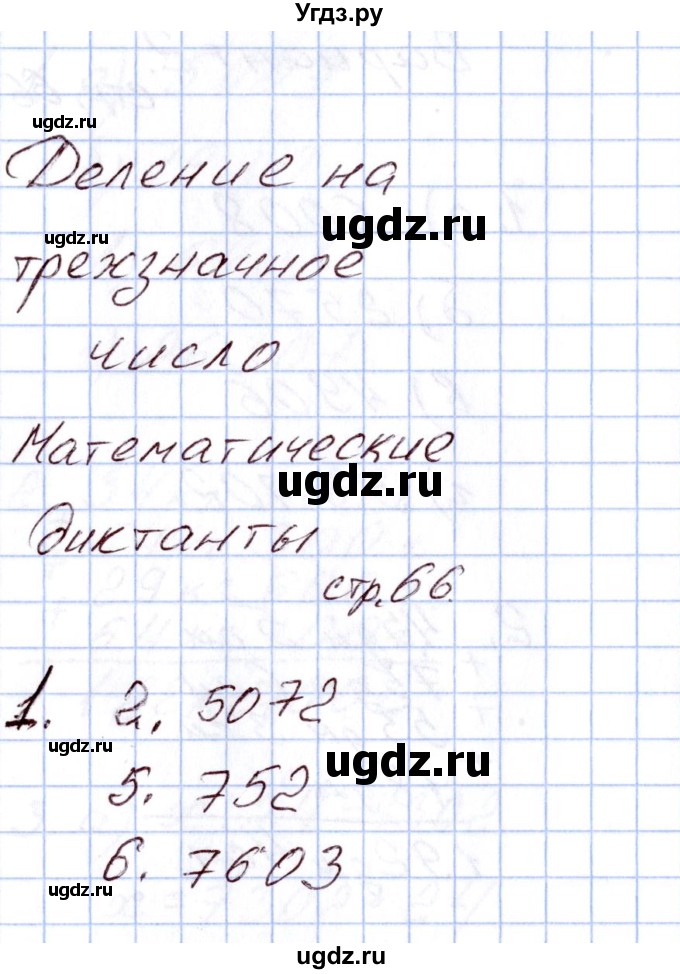 Угдз.ру
ugdz.ru
Деление на
ugdz.ru
ugdz.ru
трехзначное
число
Математические
ugdz.ru
диктанты
стр. 66.
1. 2. 5072
ugdz.ru
ugdz.ru
5. 752
6. 7603
ugdz.ru
ugdz.ru